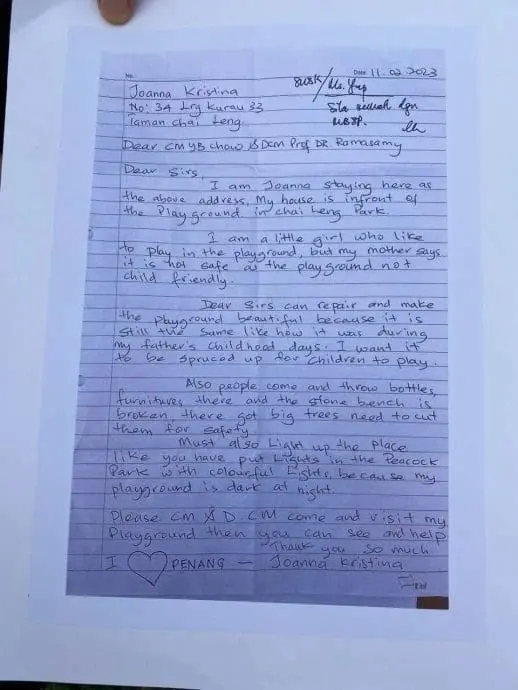 No.
DATE: 11.02.2023
Joanna Kristina
No: 34 Lrg Kurau 33
Taman Chai Leng.
SUSK/Ms. Yap
Sila semak dgn
MBSP.
Dear CM YB Chow & DCM Prof DR. Ramasamy
Dear Sirs,
I am Joanna staying here as
the above address, My house is infront of
the Play ground in chai Leng Park.
I am a little girl who like
to play in the playground, but my mother says
it is not safe as the playground not
child friendly.
Dear Sirs can repair and make
the playground beautiful because it is
still the same like how it was during
my father's childhood days. I want it
to be spruced up for children to play.
Also people come and throw bottles,
furnitures there and the stone bench is
broken there got big trees need to cut
them for safety.
Must also Light up the place
like you have put Lights in the Peacock
Park with colourful Lights, because my
playground is dark at night.
Please CM & D CM come and visit my
Playground then you can see and help
Thank you so much
I PENANG — Joanna Kristina